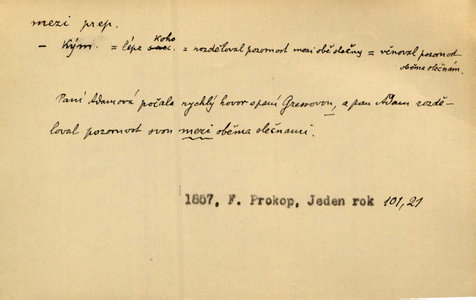 mezi prep.
Koho
– Kým. = lépe = rozděloval pozornost mezi obě slečny = věnoval pozornost
oběma slečnám.
Paní Adamová počala rychlý hovor s paní Gressovou, a pan Adam rozdě-
loval pozornost svou mezi oběma slečnami.
1857, F. Prokop, Jeden rok 101,21